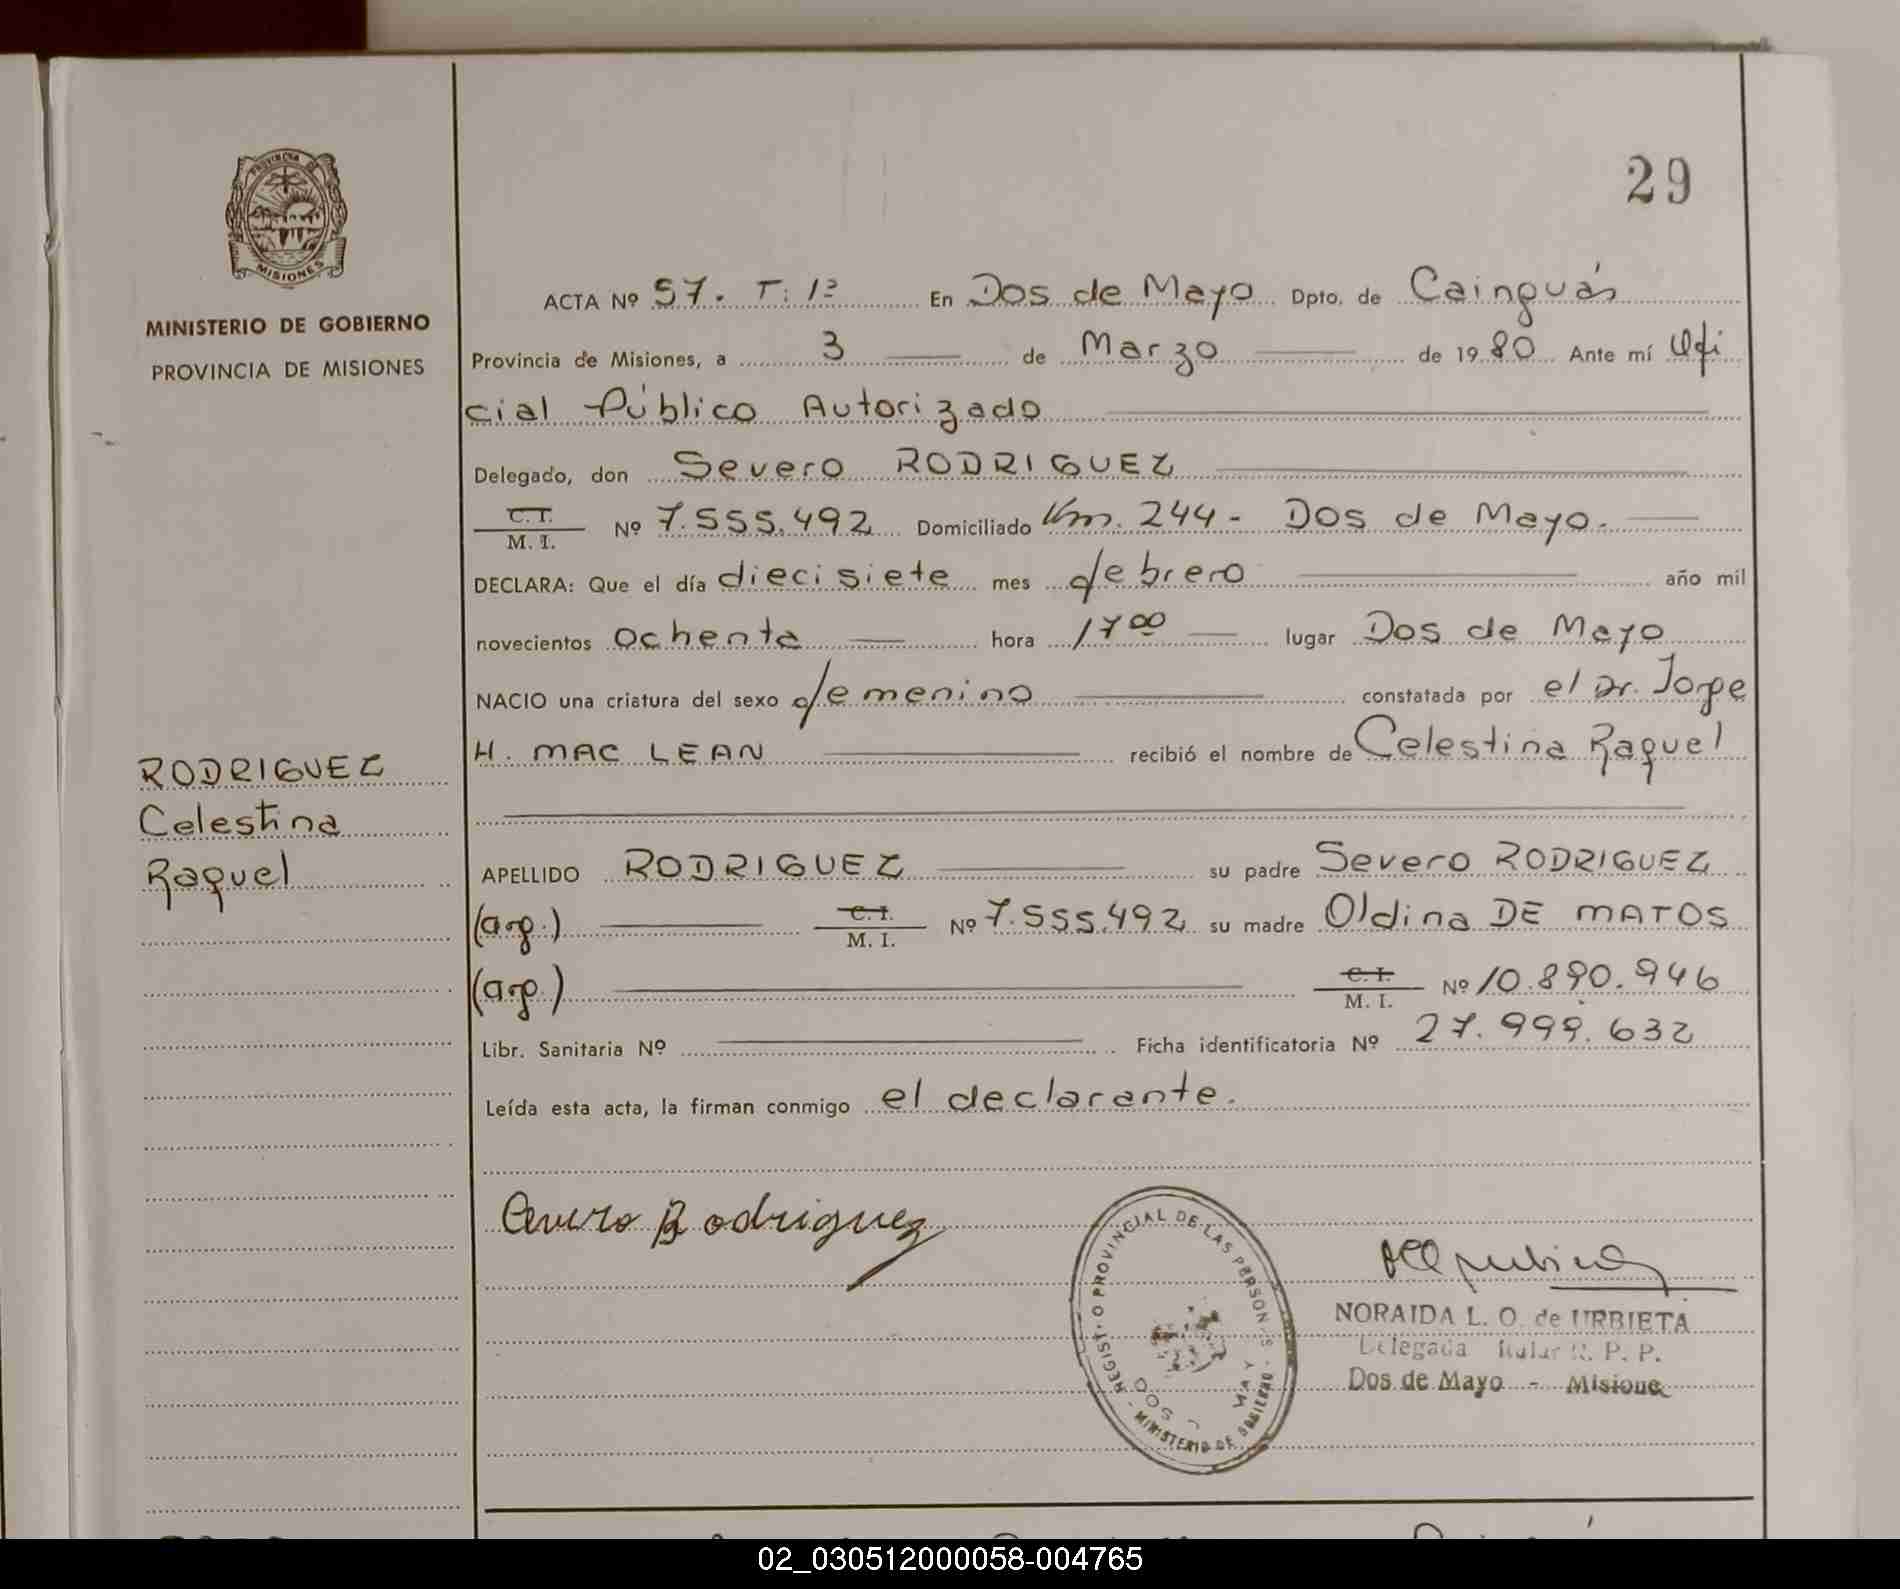 PROVINCIA DE
MISIONES
MINISTERIO DE GOBIERNO
PROVINCIA DE MISIONES
RODRIGUEZ
Celestina
Raquel
29
ACTA Nº 57. T: 1º En Dos de Mayo Dpto. de Cainguás
Provincia de Misiones, a 3 de Marzo de 1980 Ante mí Ofi
cial Público Autorizado
Delegado, don Severo RODRIGUEZ
C. I.
M. I. Nº 7.555.492 Domiciliado Km. 244 - Dos de Mayo.
DECLARA: Que el día diecisiete mes febrero año mil
novecientos ochenta hora 17 00 lugar Dos de Mayo
NACIO una criatura del sexo femenino constatada por el Dr. Jorge
H. MAC LEAN recibió el nombre de Celestina Raquel
APELLIDO RODRIGUEZ su padre Severo RODRIGUEZ
(arg.) C. I. M. I. Nº 7.555.492 su madre Oldina DE MATOS
(arg.) C. I. M. I. Nº 10.890.946
Libr. Sanitaria Nº Ficha identificatoria Nº 27.999.632
Leída esta acta, la firman conmigo el declarante.
Rodriguez
REGIST O PROVINCIAL DE LAS PERSON S
MINISTERIO DE GOBIERNO
DOS
NORAIDA L. O. de URBIETA
Delegada R. P. P.
Dos de Mayo - Misione
02_030512000058-004765